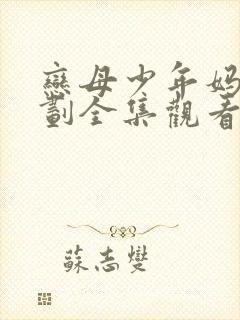 戀母少年妈
劃全集觀看
蘇志燮